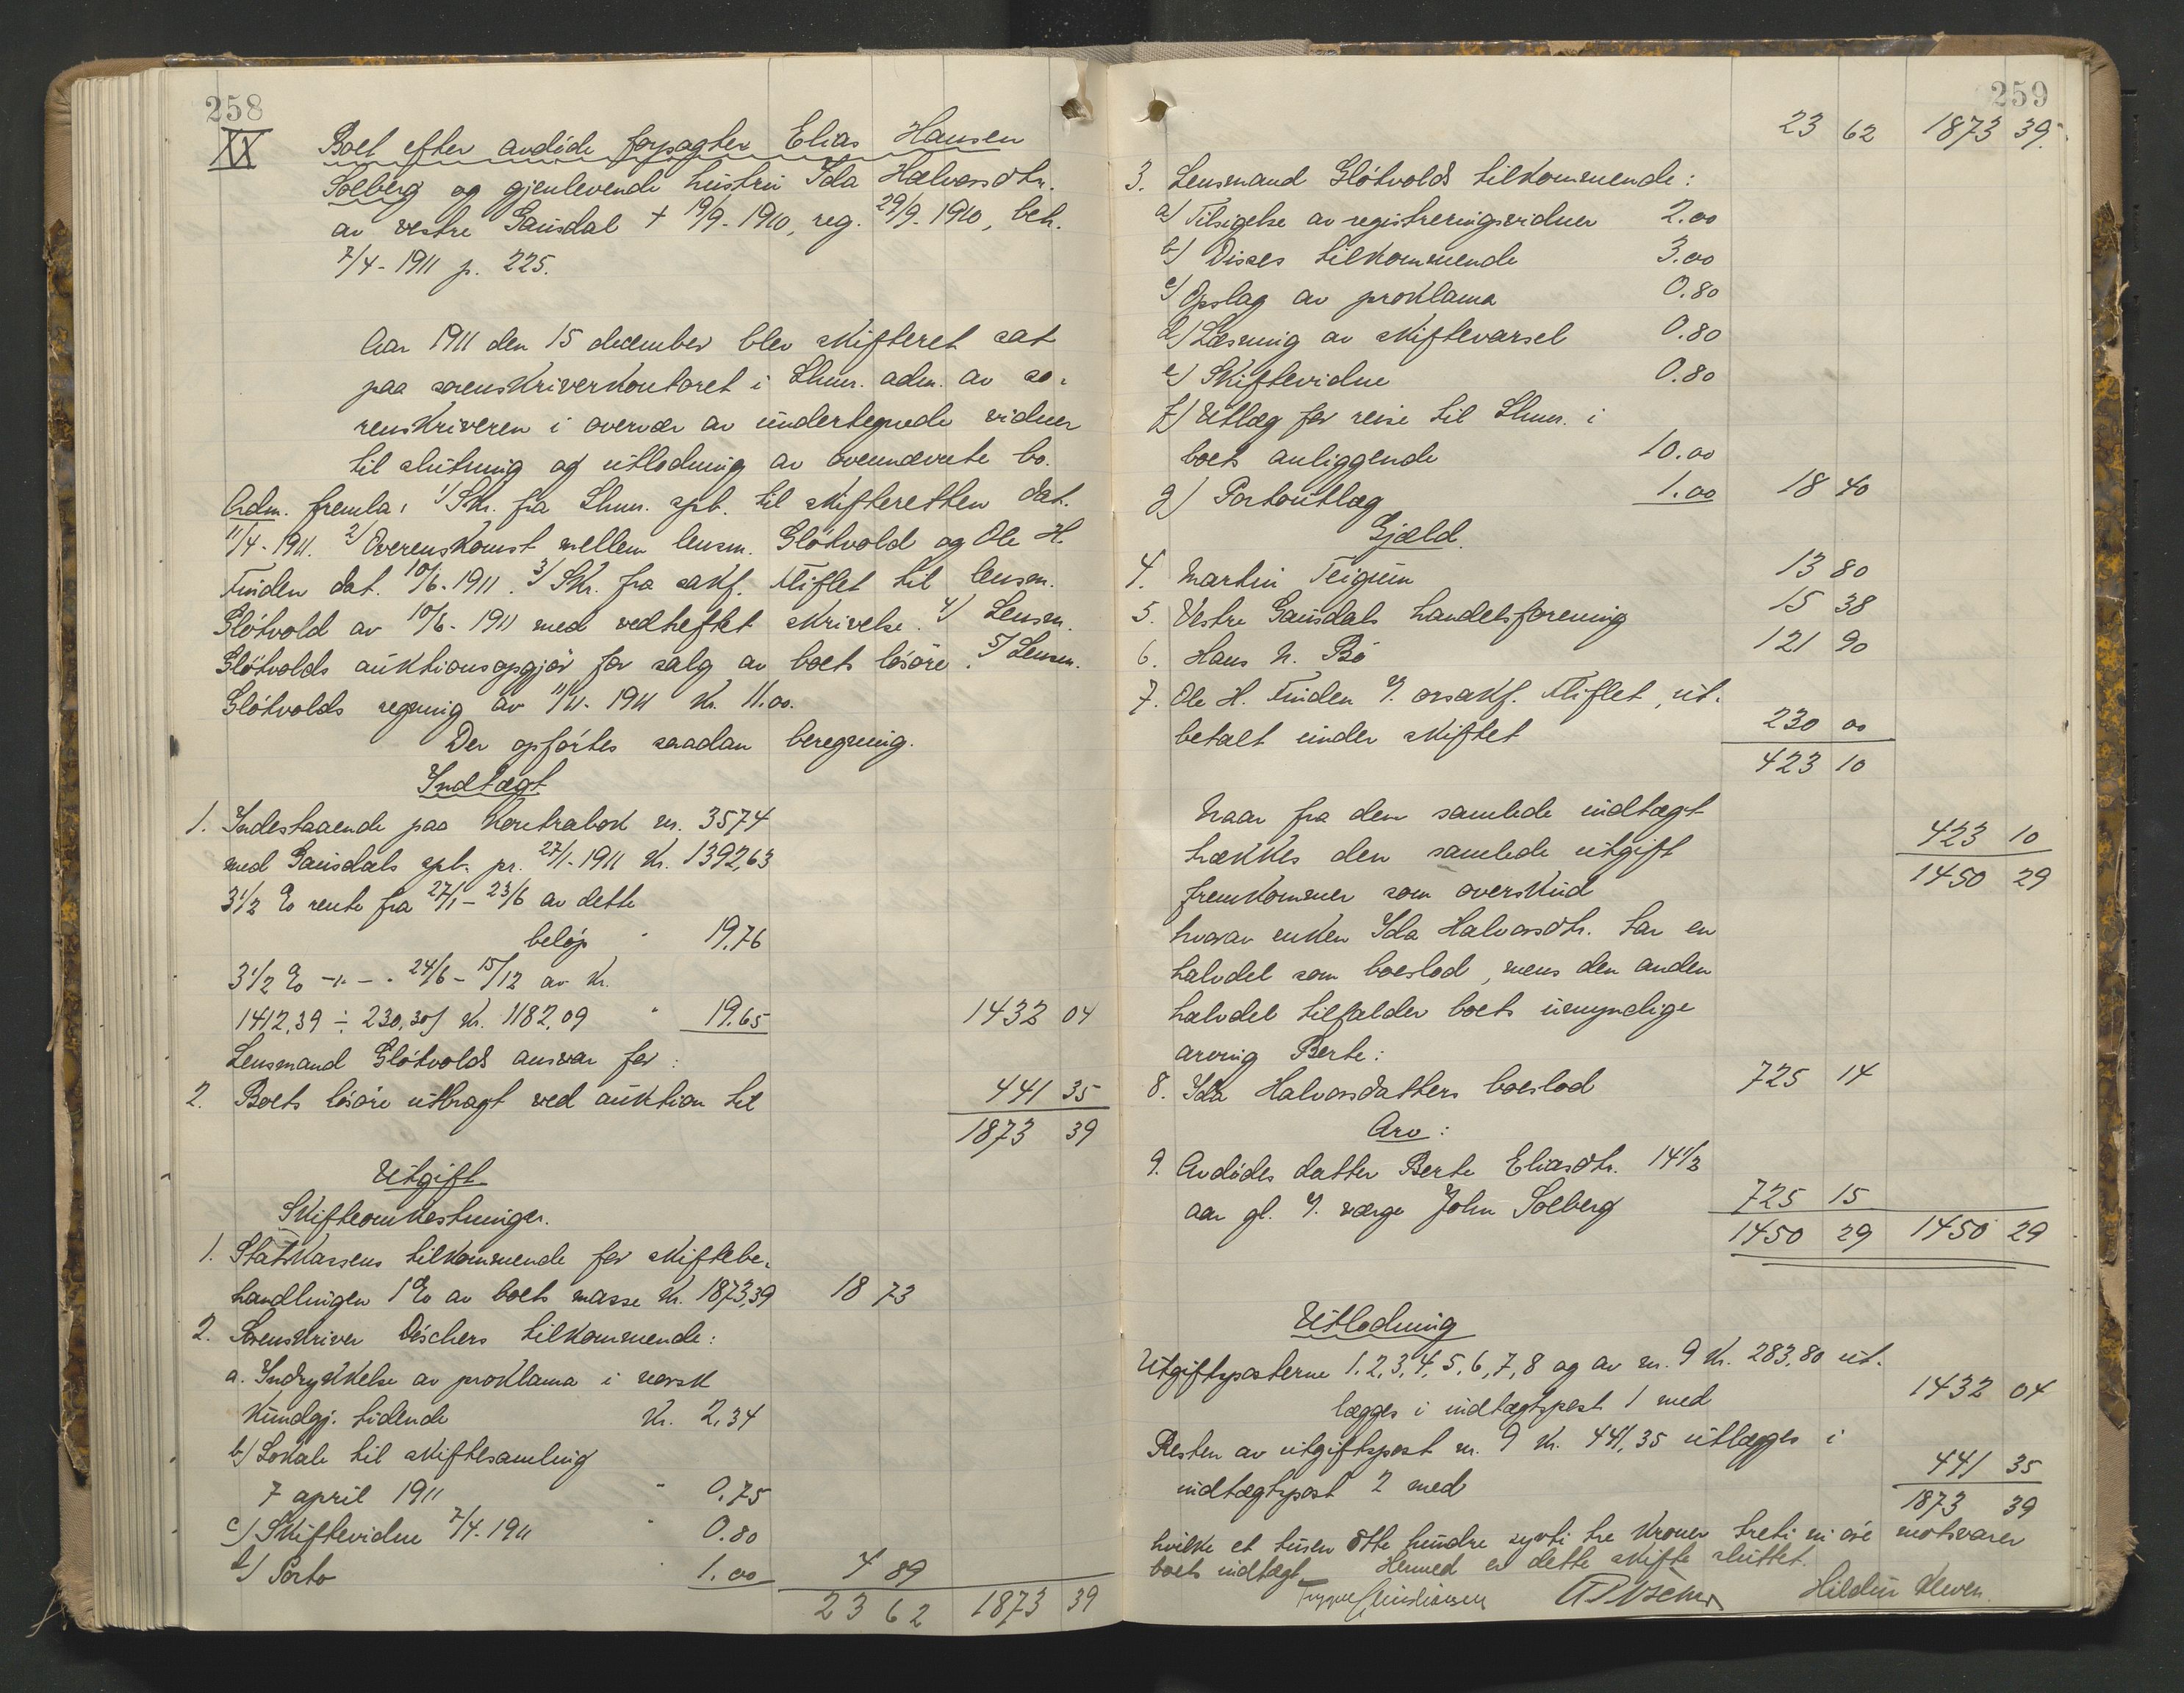 258
XX
Boet efter avdøde forpagter Elias Hansen
Solberg og gjenlevende hustru Ida Halvorsdtr.
av vestre Gausdal + 19/9-1910, reg. 29/9-1910, beh.
7/4-1911 p. 225.
Aar 1911 den 15 december blev skifteret sat
paa sorenskriverkontoret i Lhmr. adm. av so-
renskriveren i overvær av undertegnede vidner
til slutning og utlodning av ovennævnte bo.
Adm. fremla: 1/ Skr. fra Lhmr. spb. til skifteretten dat.
11/4-1911. 2/ Overenskomst mellem lensm. Gløtvold og Ole H.
Finden dat. 10/6-1911. 3/ Skr. fra sakf. Fliflet til lensm.
Gløtvold av 10/6-1911 med vedheftet skrivelse. 4/ Lensm.
Gløtvolds auktionsopgjør for salg av boets løsøre. 5/ Lensm.
Gløtvolds regning av 11/11-1911 kr. 11.00.
Der opførtes saadan beregning.
Indtægt
1. Indestaaende paa Kontrabok nr. 3574
med Gausdals spb. pr. 27/1-1911 kr. 1392,63
3 1/2 % rente fra 27/1-23/6 av dette
beløp " 19.76
3 1/2 % -"- - " 24/6-15/12 av kr.
1412.39 ÷ 230,30/ kr. 1182,09 " 19.65 1432 04
Lensmand Gløtvolds ansvar for:
2. Boets løsøre utbragt ved auktion til 441 35
1873 39
Utgift
Skifteomkostninger.
1. Statskassens tilkommende for skiftebe-
handlingen 1 % av boets masse kr. 1873,39 18 73
2. Sorenskriver Dischers tilkommende:
a. Indrykkelse av proklama i norsk
kundgj. tidende kr. 2,34
b/ Lokale til skiftesamling
7 april 1911 " 0.75
c/ Skiftevidne 7/4-1911 " 0.80
d/ Porto " 1.00 4 89
23 62 1873 39
259
23 62 1873 39.
3. Lensmand Gløtvolds tilkommende:
a/ Tilsigelse av registreringsvidner 2.00
b/ Disses tilkommende 3.00
c/ Opslag av proklama 0.80
d/ Læsning av skiftevarsel 0.80
e/ Skiftevidne 0.80
f/ Utlæg for reise til Lhmr. i
boets anliggende 10.00
g/ Portoutlæg 1.00 18 40
Gjæld.
4. Martin Teigum 13 80
5. Vestre Gausdals handelsforening 15 38
6. Hans N. Bø 121 90
7. Ole H. Finden v. orsakf. Fliflet, ut-
betalt under skiftet 230 00
423 10
Naar fra den samlede indtægt
trækkes den samlede utgift 423 10
fremkommer som overskud 1450 29
hvorav enken Ida Halvorsdtr. tar en
halvdel som boeslod, mens den anden
halvdel tilfalder boets umyndige
arving Berte:
8. Ida Halvorsdatters boeslod 725 14
Arv:
9. Avdødes datter Berte Eliasdtr. 14 1/2
aar gl. v. værge John Solberg 725 15
1450 29 1450 29
Utlodning
Utgiftsposterne 1, 2, 3, 4, 5, 6, 7, 8 og av nr. 9 kr. 283,80 ut-
lægges i indtægtspost 1 med 1432 04
Resten av utgiftspost nr. 9 kr. 441,35 utlægges i
indtægtspost 2 med 441 35
1873 39
hvilke et tusen otte hundre sytti tre kroner tretti ni øre motsvarer
boets indtægt. Hermed er dette skifte sluttet.
Trygve Christiansen Hildur Kleven